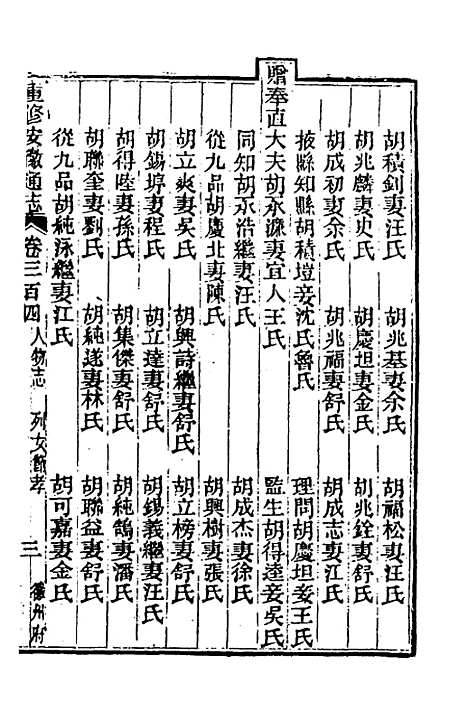 胡積釗妻汪氏 胡兆基妻余氏 胡福松妻汪氏
胡兆麟妻史氏 胡慶坦妻金氏 胡兆銓妻舒氏
胡成初妻余氏 胡兆福妻舒氏 胡成志妻江氏
掖縣知縣胡積塏妾沈氏魯氏 理問胡慶坦妾王氏
贈奉直大夫胡永濂妻宜人王氏 監生胡得逵妾吳氏
同知胡永浩繼妻汪氏 胡成杰妻徐氏
從九品胡慶北妻陳氏 胡興樹妻張氏
胡立爽妻吳氏 胡興詩繼妻舒氏 胡立榜妻舒氏
胡錫垶妻程氏 胡立達妻舒氏 胡錫義繼妻汪氏
胡得陞妻孫氏 胡集傑妻舒氏 胡純鵠妻潘氏
胡聯奎妻劉氏 胡純遂妻林氏 胡聯益妻舒氏
從九品胡純泳繼妻江氏 胡可嘉妻金氏
重修安徽通志 卷三百四 人物志 列女節孝 三 徽州府